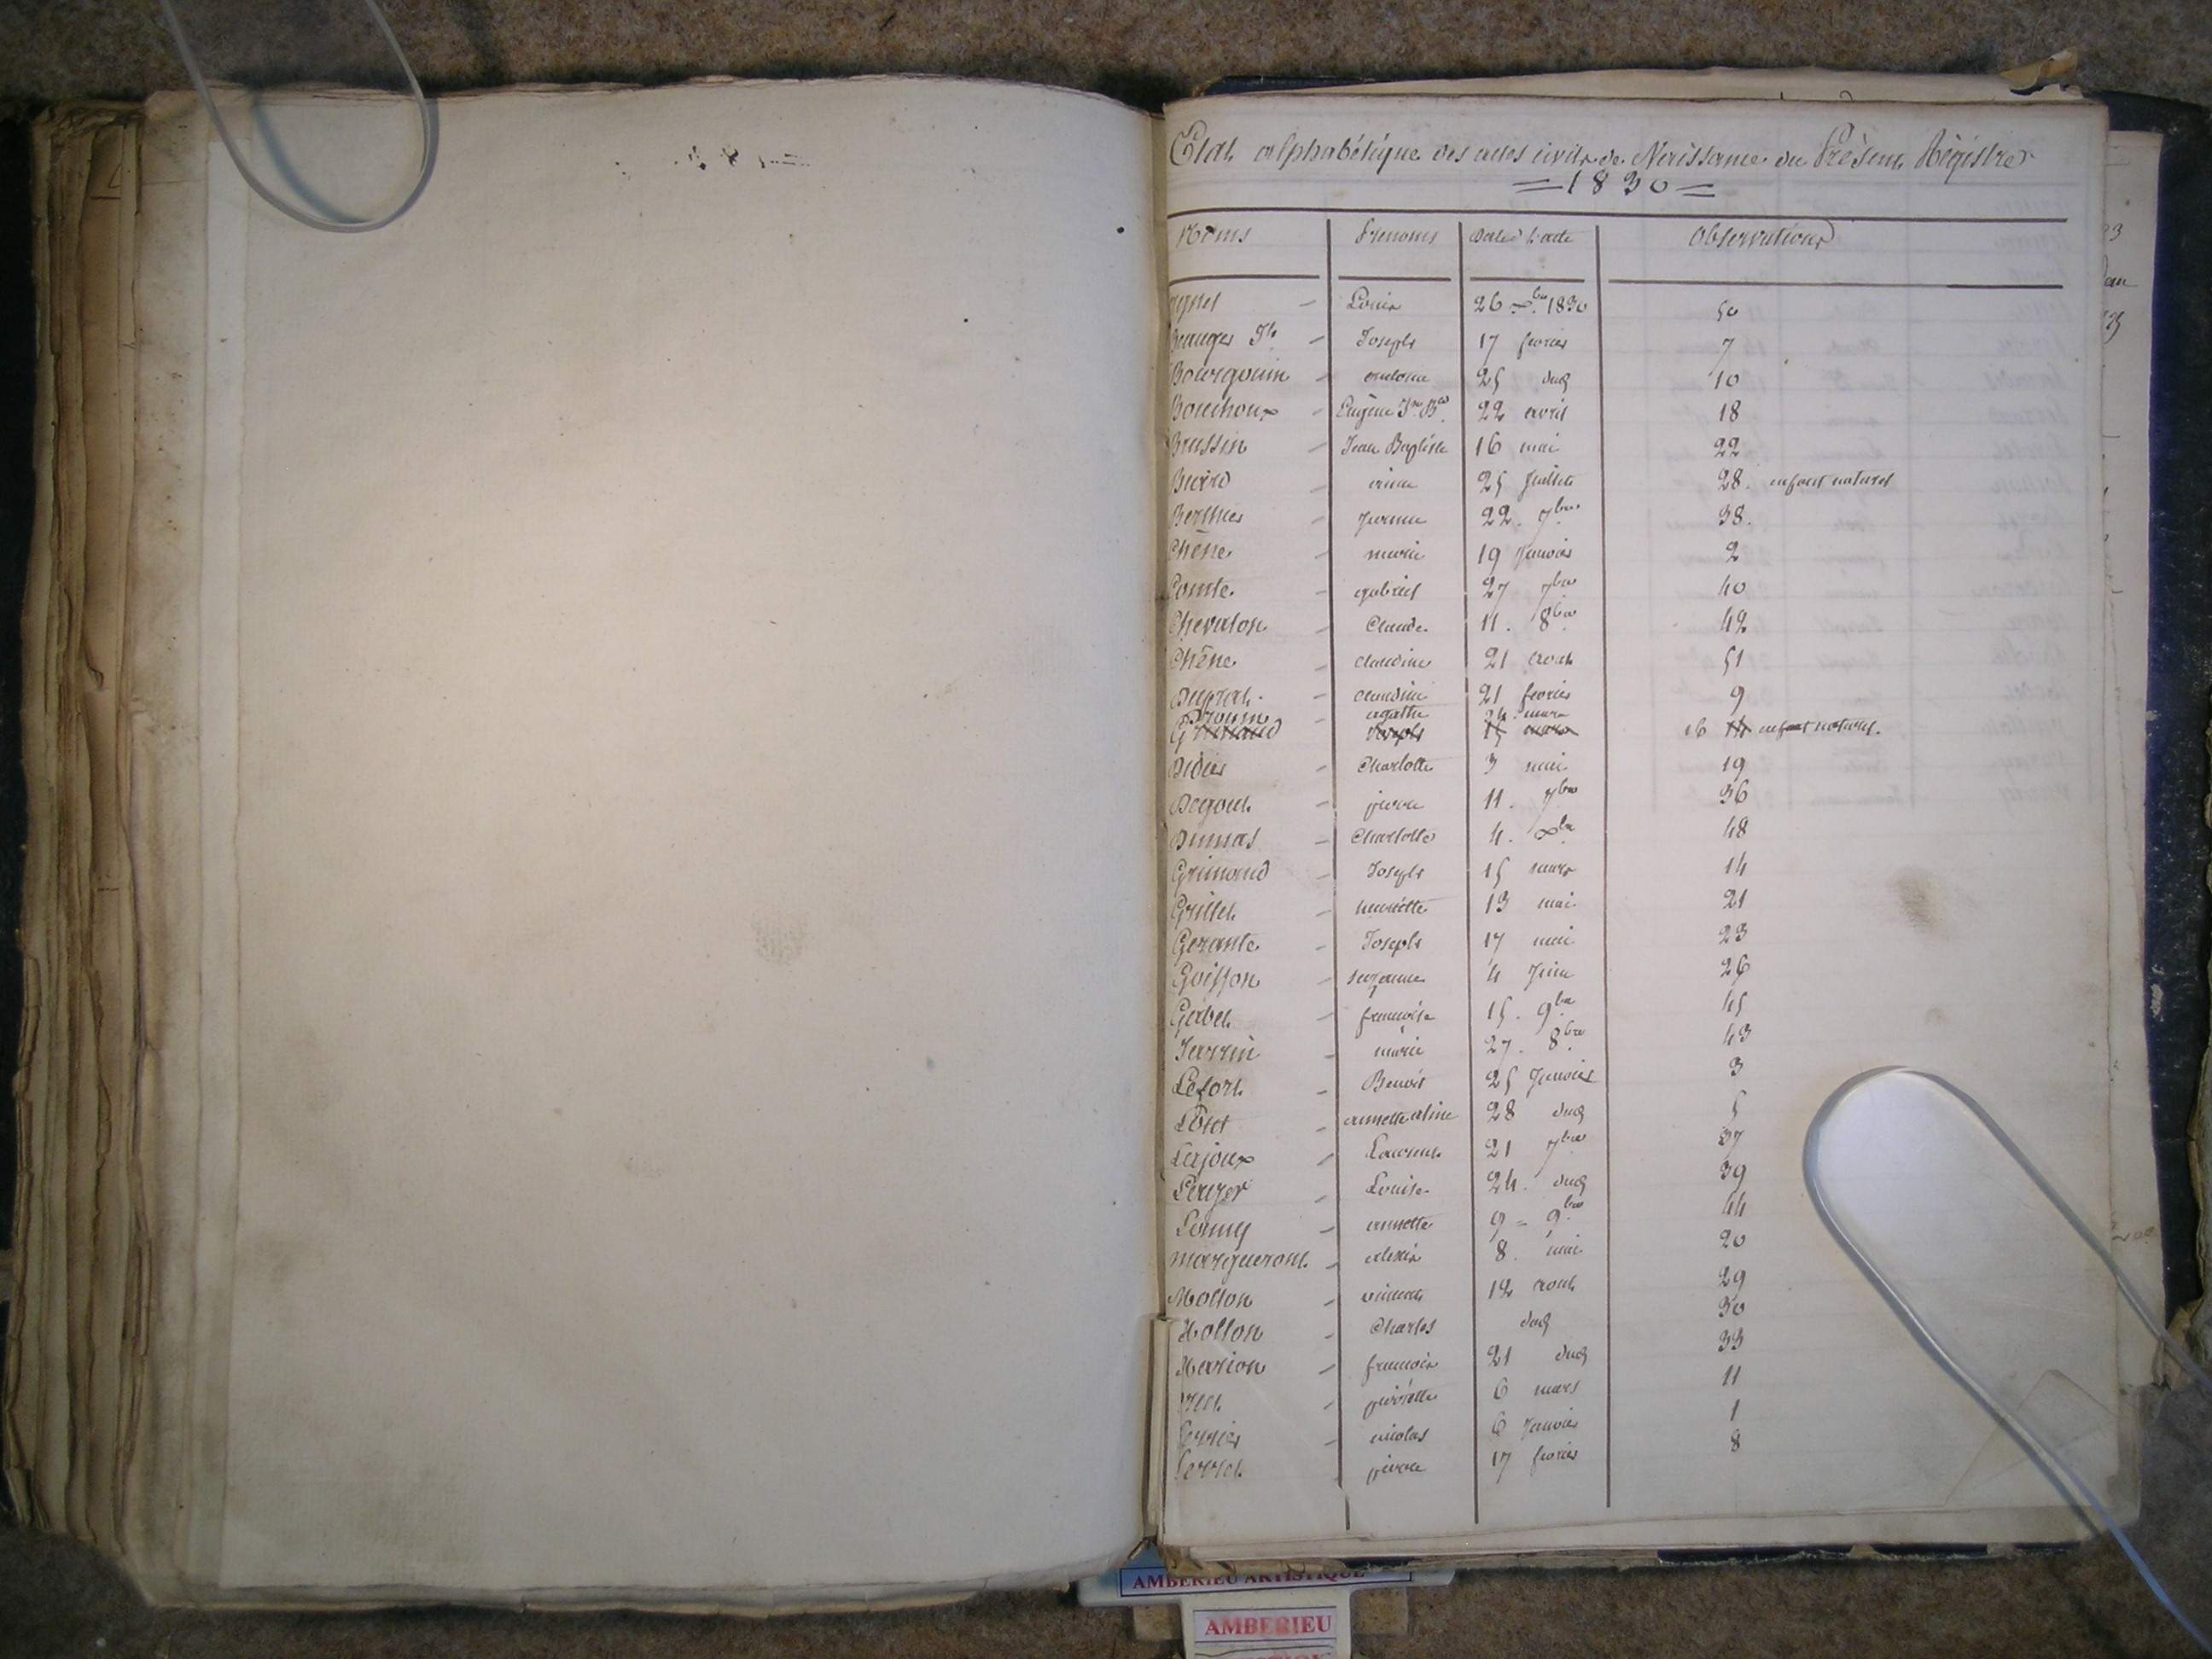 Etat alphabétique des actes civils de Naissance du Présent Régistre
= 1830 =
Noms Prenoms Date de l'acte Observations
Louis 26 1830 50
Joseph 17 fevrier 7
Bourgouin - antoine 25 dud 10
Bouchoux - Eugène Jn Bte 22 avril 18
Brussin - Jean Baptiste 16 mai 22
25 Juillet 28. enfant naturel
Berthier - 22. 7bre 38.
Chêne - marie 19 Janvier 2
Comte - gabriel 27 7bre 40
Chevalon - Claude 11. 8bre 42
Chêne - claudine 21 aout 51
Dupras - claudine 21 fevrier 9
Drouin - agathe 24 mars
Grimaud Joseph 15 mars 16 14 enfant naturel.
Didier - Charlotte 3 mai 19
Degout - pierre 11. 7bre 36
Dumas - Charlotte 4. Xbre 48
Grimaud - Joseph 15 mars 14
Grillet - henriette 13 mai 21
Gerante - Joseph 17 mai 23
Goiffon - suzanne 4 Juin 26
Gabet - francoise 15. 9bre 45
Jarrin - marie 27. 8bre 43
Lefort - Benoit 25 Janvier 3
annette aline 28 dud 5
Lajoux - Laurent 21 7bre 37
Louise 24. dud 39
annette 9 = 9bre 44
margueront - alexis 8. mai 20
Mollon - vincent 12 aout 29
Mollon - Charles dud 30
Marion - francois 21 dud 33
pierrette 6 mars 11
Perrier - nicolas 6 Janvier 1
Perret - pierre 17 fevrier 8
AMBERIEU ARTISTIQUE
AMBERIEU